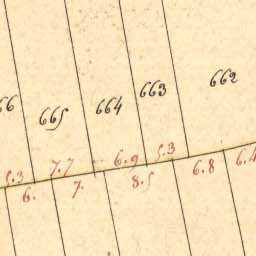 662
663
664
665
66
5.3
7.7
6.9
5.3
6.4
6.
7.
8.5
6.8